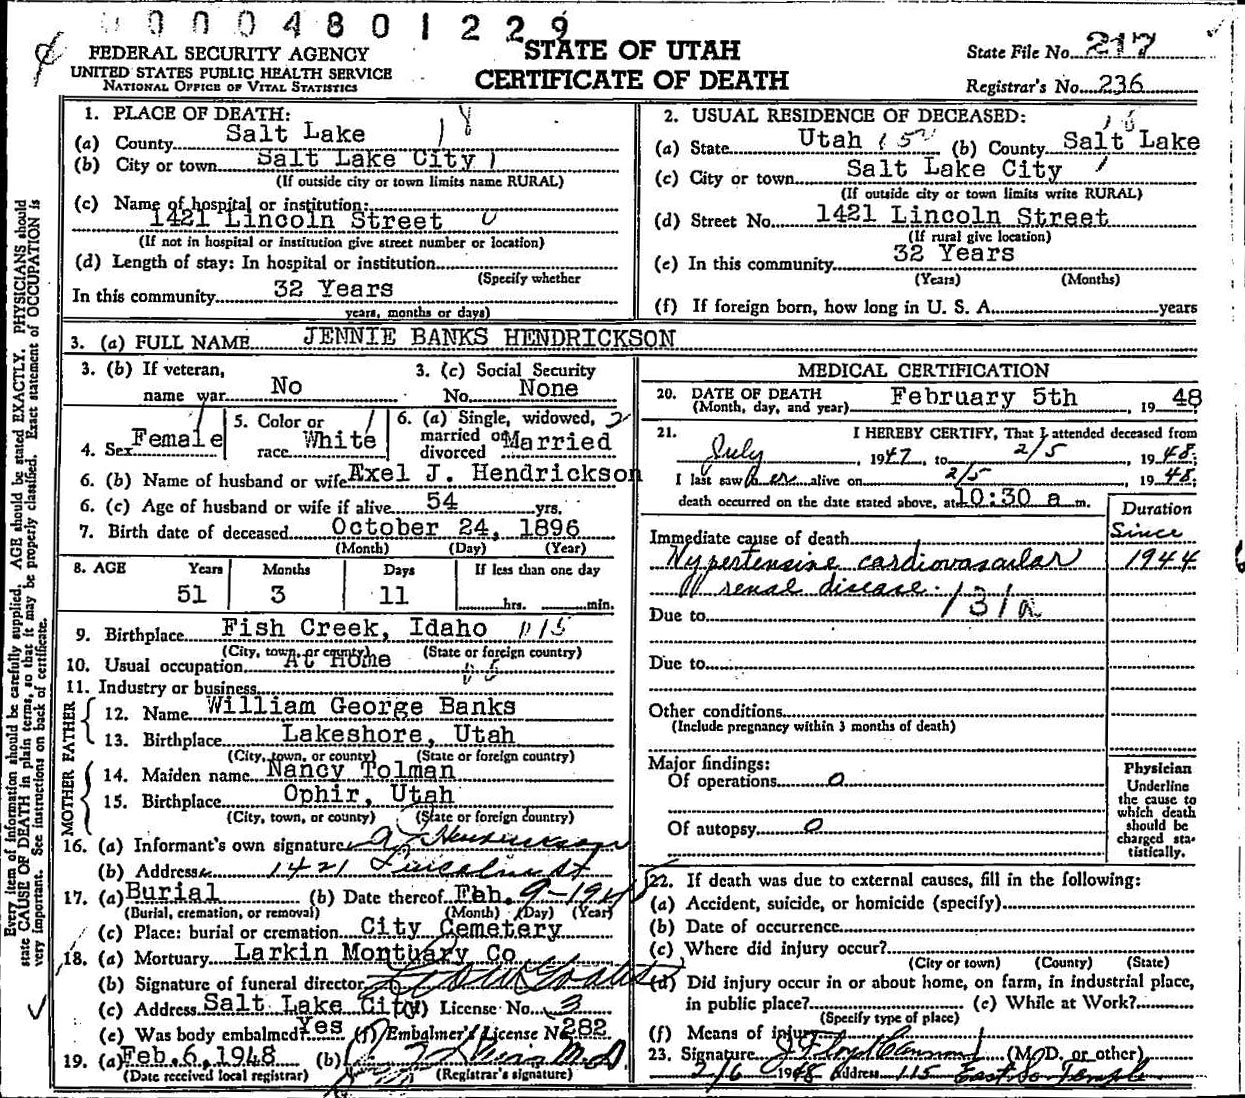 0 0 0 0 4 8 0 1 2 2 9
FEDERAL SECURITY AGENCY
UNITED STATES PUBLIC HEALTH SERVICE
NATIONAL OFFICE OF VITAL STATISTICS
STATE OF UTAH
CERTIFICATE OF DEATH
State File No. 217
Registrar's No. 236
Every item of information should be carefully supplied. AGE should be stated EXACTLY. PHYSICIANS should
state CAUSE OF DEATH in plain terms, so that it may be properly classified. Exact statement of OCCUPATION is
very important. See instructions on back of certificate.
1. PLACE OF DEATH:
(a) County Salt Lake 18
(b) City or town Salt Lake City 1
(If outside city or town limits name RURAL)
(c) Name of hospital or institution:
1421 Lincoln Street 0
(If not in hospital or institution give street number or location)
(d) Length of stay: In hospital or institution
(Specify whether
In this community 32 Years
years, months or days)
2. USUAL RESIDENCE OF DECEASED:
(a) State Utah (b) County Salt Lake
(c) City or town Salt Lake City
(If outside city or town limits write RURAL)
(d) Street No. 1421 Lincoln Street
(If rural give location)
(e) In this community 32 Years
(Years) (Months)
(f) If foreign born, how long in U. S. A. years
3. (a) FULL NAME JENNIE BANKS HENDRICKSON
3. (b) If veteran, name war No
3. (c) Social Security No. None
4. Sex Female
5. Color or race White
6. (a) Single, widowed, married or divorced Married 2
6. (b) Name of husband or wife Exel J. Hendrickson
6. (c) Age of husband or wife if alive 54 yrs.
7. Birth date of deceased October 24, 1896
(Month) (Day) (Year)
8. AGE Years Months Days If less than one day
51 3 11 hrs. min.
9. Birthplace Fish Creek, Idaho
(City, town, or county) (State or foreign country)
10. Usual occupation At Home
11. Industry or business
FATHER
12. Name William George Banks
13. Birthplace Lakeshore, Utah
(City, town, or county) (State or foreign country)
MOTHER
14. Maiden name Nancy Tolman
15. Birthplace Ophir, Utah
(City, town, or county) (State or foreign country)
16. (a) Informant's own signature Hendrickson
(b) Address 1421 Lincoln St
17. (a) Burial (b) Date thereof Feb. 9-1948
(Burial, cremation, or removal) (Month) (Day) (Year)
(c) Place: burial or cremation City Cemetery
18. (a) Mortuary Larkin Montuary Co
(b) Signature of funeral director
(c) Address Salt Lake City (d) License No. 3
(e) Was body embalmed? Yes (f) Embalmer's License No. 282
19. (a) Feb. 6, 1948 (b) M.D.
(Date received local registrar) (Registrar's signature)
MEDICAL CERTIFICATION
20. DATE OF DEATH February 5th, 19 48
(Month, day, and year)
21. I HEREBY CERTIFY, That I attended deceased from
July, 1947, to 2/5, 1948;
I last saw her alive on 2/5, 1948;
death occurred on the date stated above, at 10:30 a m.
Duration
Immediate cause of death Since
Hypertensive cardiovascular 1944
renal disease. 131a
Due to
Due to
Other conditions
(Include pregnancy within 3 months of death)
Major findings:
Of operations 0
Of autopsy 0
Physician
Underline
the cause to
which death
should be
charged sta-
tistically.
22. If death was due to external causes, fill in the following:
(a) Accident, suicide, or homicide (specify)
(b) Date of occurrence
(c) Where did injury occur?
(City or town) (County) (State)
(d) Did injury occur in or about home, on farm, in industrial place,
in public place? (e) While at Work?
(Specify type of place)
(f) Means of injury
23. Signature J Floyd Cannon (M.D. or other)
2/6 1948 Address 115 East So Temple